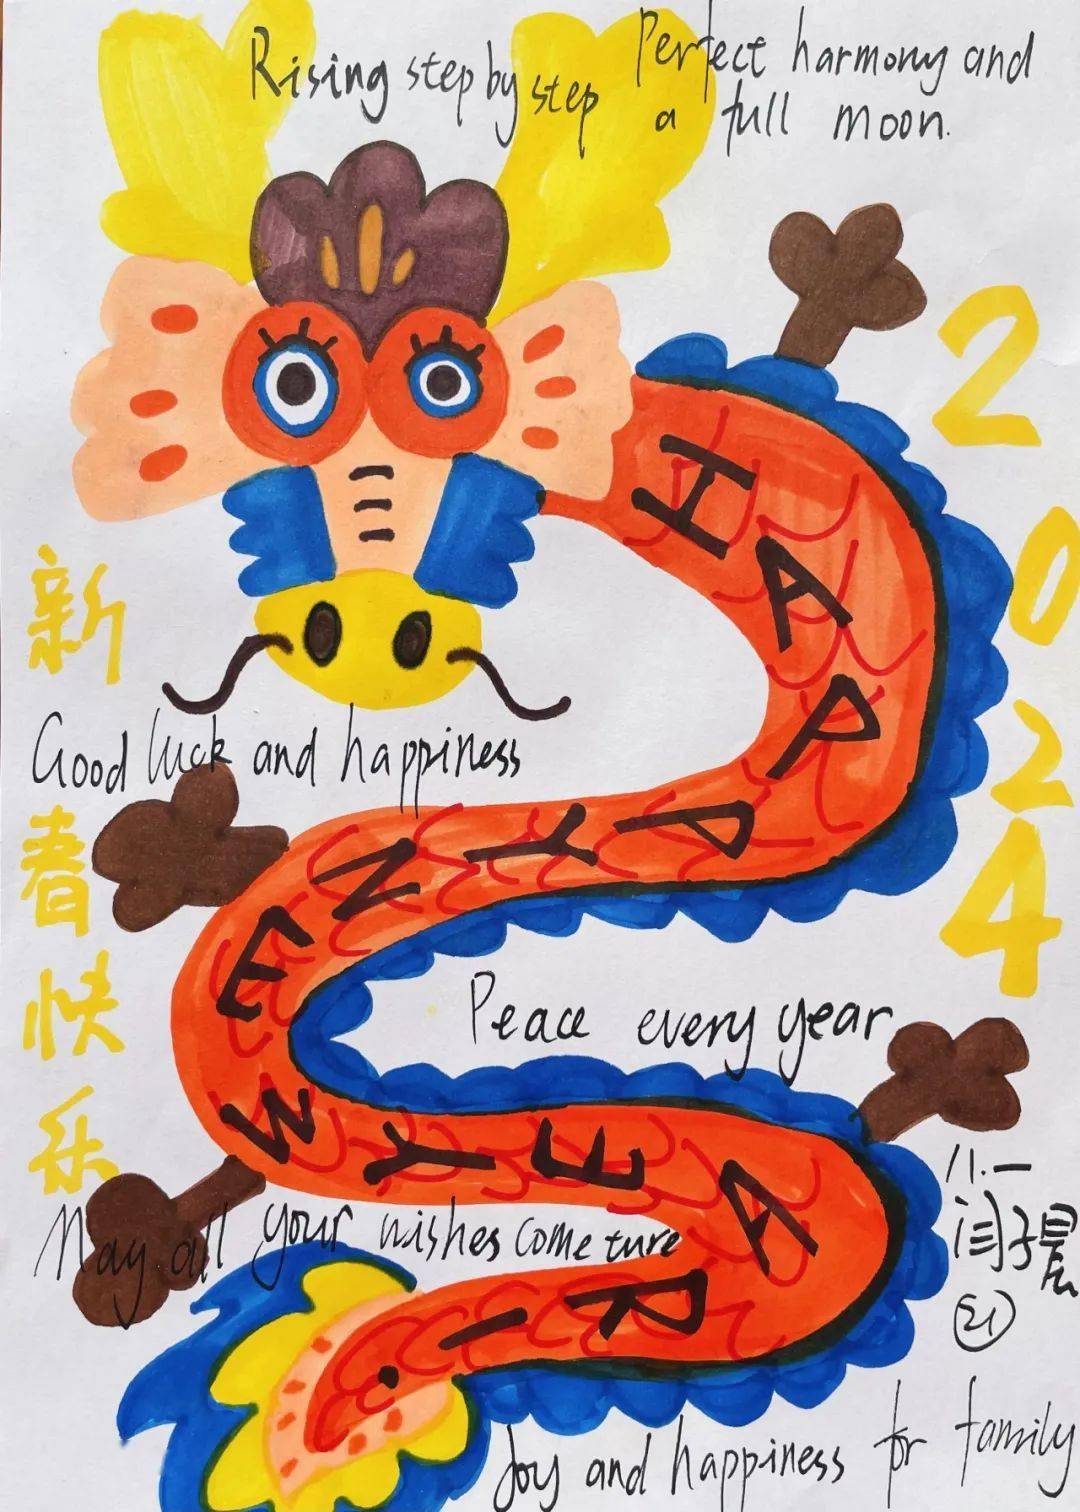 Rising step by step
Perfect harmony and
a full moon.
2024
HAPPY NEW YEAR!
新春快乐
Good luck and happiness
Peace every year
May all your wishes come ture
八.一
闫子晨
21
Joy and happiness for family